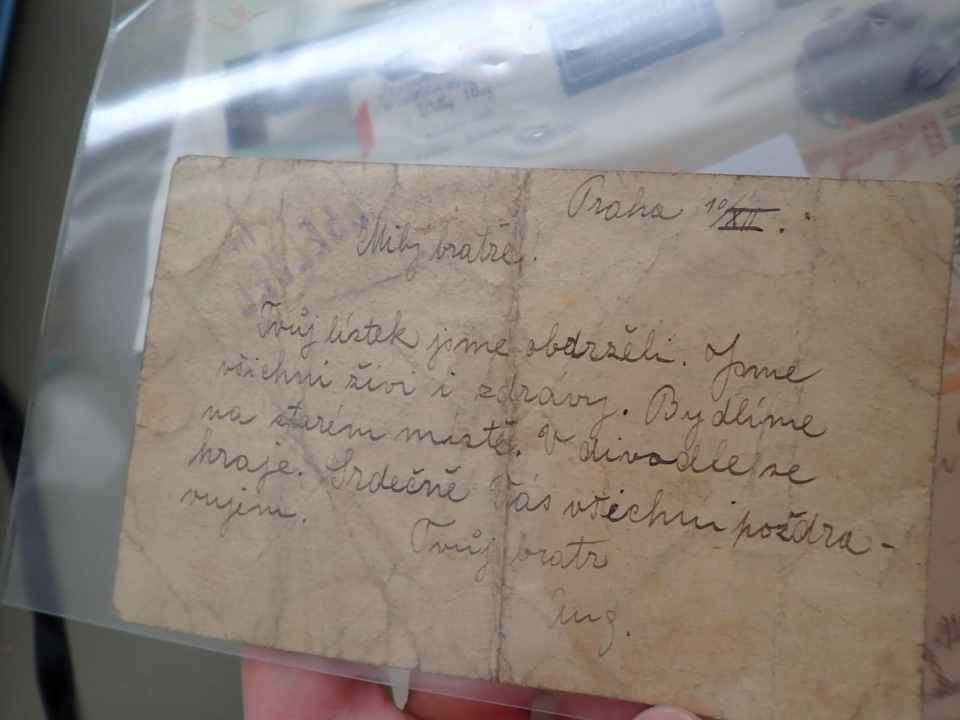 Praha 10/XII.
Milý bratře!
Tvůj lístek jsme obdrželi. Jsme
všichni živi i zdrávy. Bydlíme
na starém místě. V divadle se
hraje. Srdečně Vás všichni pozdra-
vujem.
Tvůj bratr